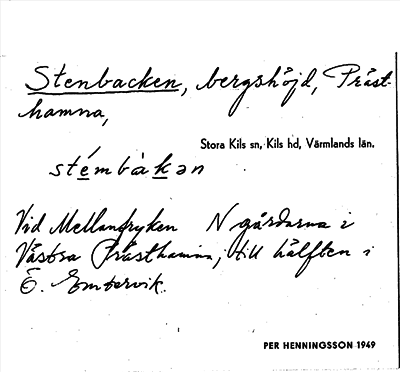 Stenbacken, bergshöjd, Präst-
hamna,
Stora Kils sn, Kils hd, Värmlands län.
stémbàkən
Vid Mellanfryken N gårdarna i
Västra Prästhamna, till hälften i
E. Embervik.
PER HENNINGSSON 1949